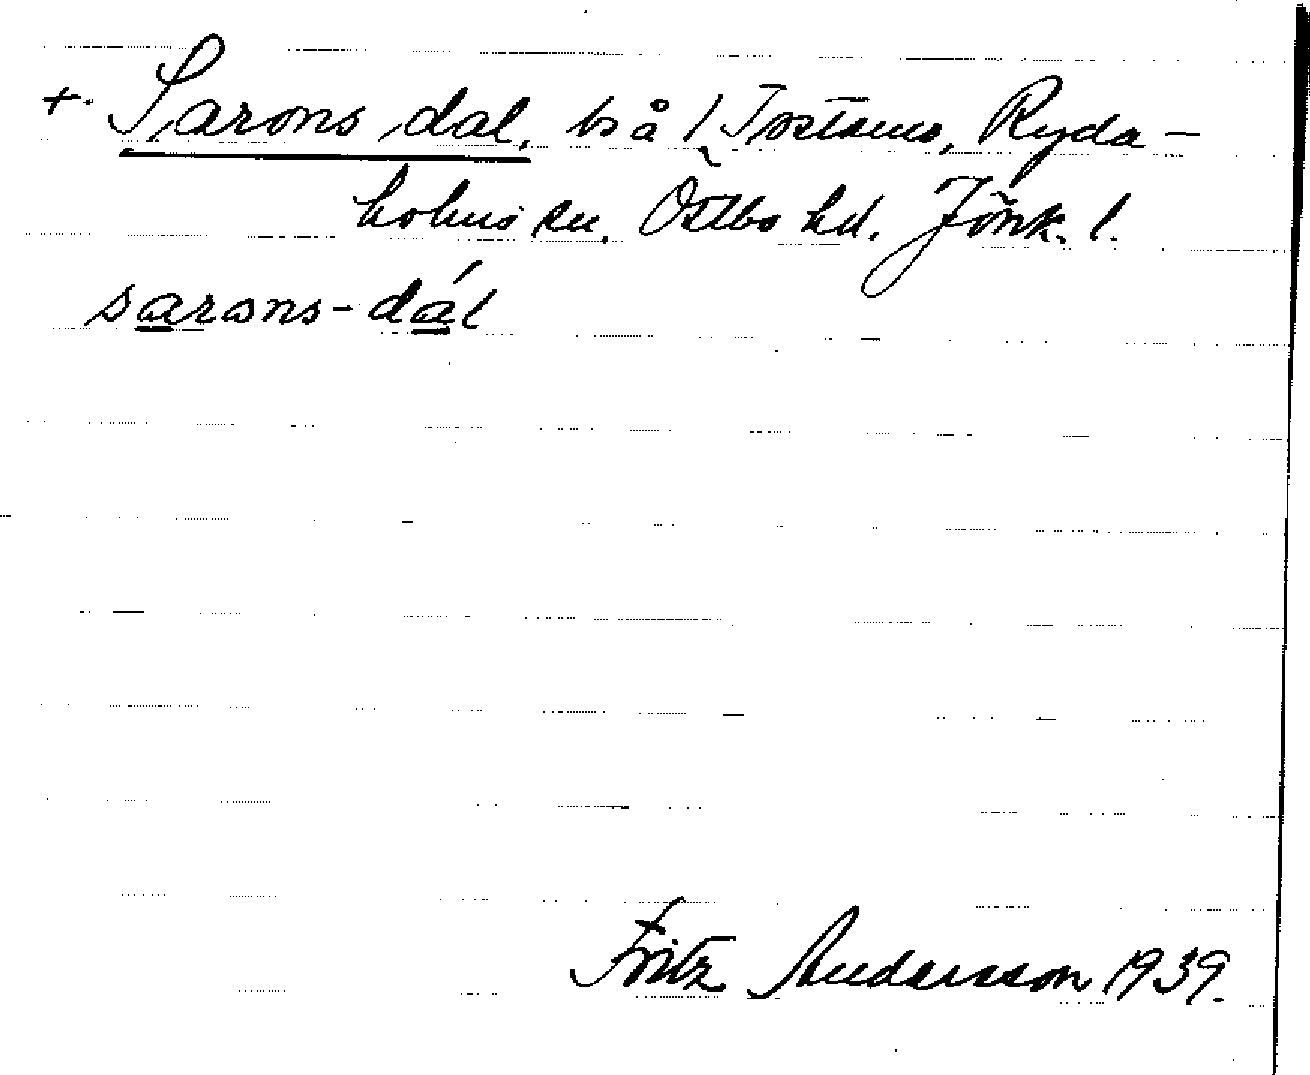 +. Sarons dal, bs å 1 Tostarns, Ryda-
holms sn. Östbo hd. Jönk. l.
sarons-dál
Fritz Andersson 1939.